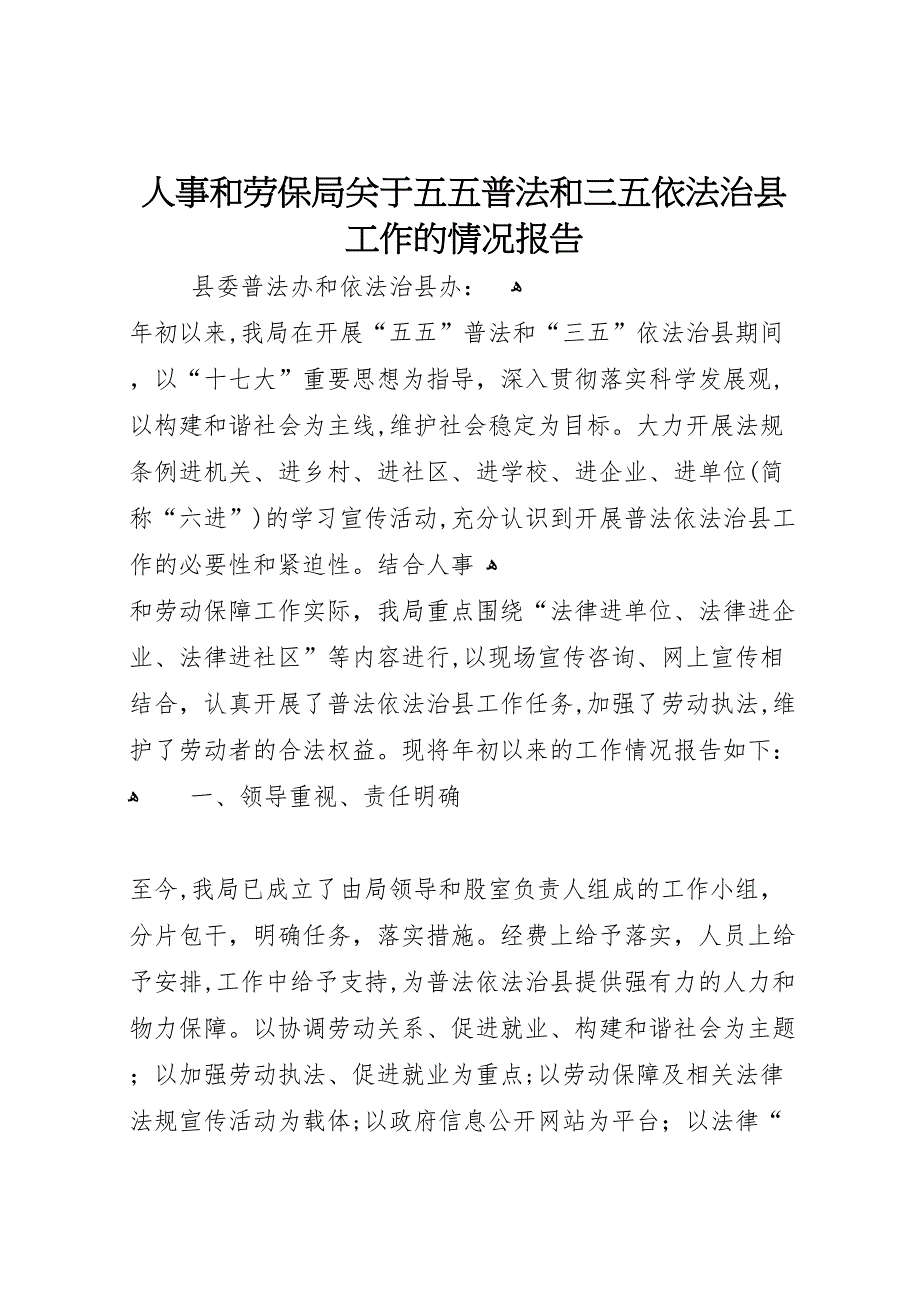 人事和劳保局关于五五普法和三五依法治县
工作的情况报告
县委普法办和依法治县办： ﻬ
年初以来,我局在开展“五五”普法和“三五”依法治县期间
，以“十七大”重要思想为指导，深入贯彻落实科学发展观,
以构建和谐社会为主线,维护社会稳定为目标。大力开展法规
条例进机关、进乡村、进社区、进学校、进企业、进单位(简
称“六进”)的学习宣传活动,充分认识到开展普法依法治县工
作的必要性和紧迫性。结合人事 ﻬ
和劳动保障工作实际，我局重点围绕“法律进单位、法律进企
业、法律进社区”等内容进行,以现场宣传咨询、网上宣传相
结合，认真开展了普法依法治县工作任务,加强了劳动执法,维
护了劳动者的合法权益。现将年初以来的工作情况报告如下：
ﻬ 一、领导重视、责任明确
至今,我局已成立了由局领导和股室负责人组成的工作小组，
分片包干，明确任务，落实措施。经费上给予落实，人员上给
予安排,工作中给予支持,为普法依法治县提供强有力的人力和
物力保障。以协调劳动关系、促进就业、构建和谐社会为主题
；以加强劳动执法、促进就业为重点;以劳动保障及相关法律
法规宣传活动为载体;以政府信息公开网站为平台；以法律“